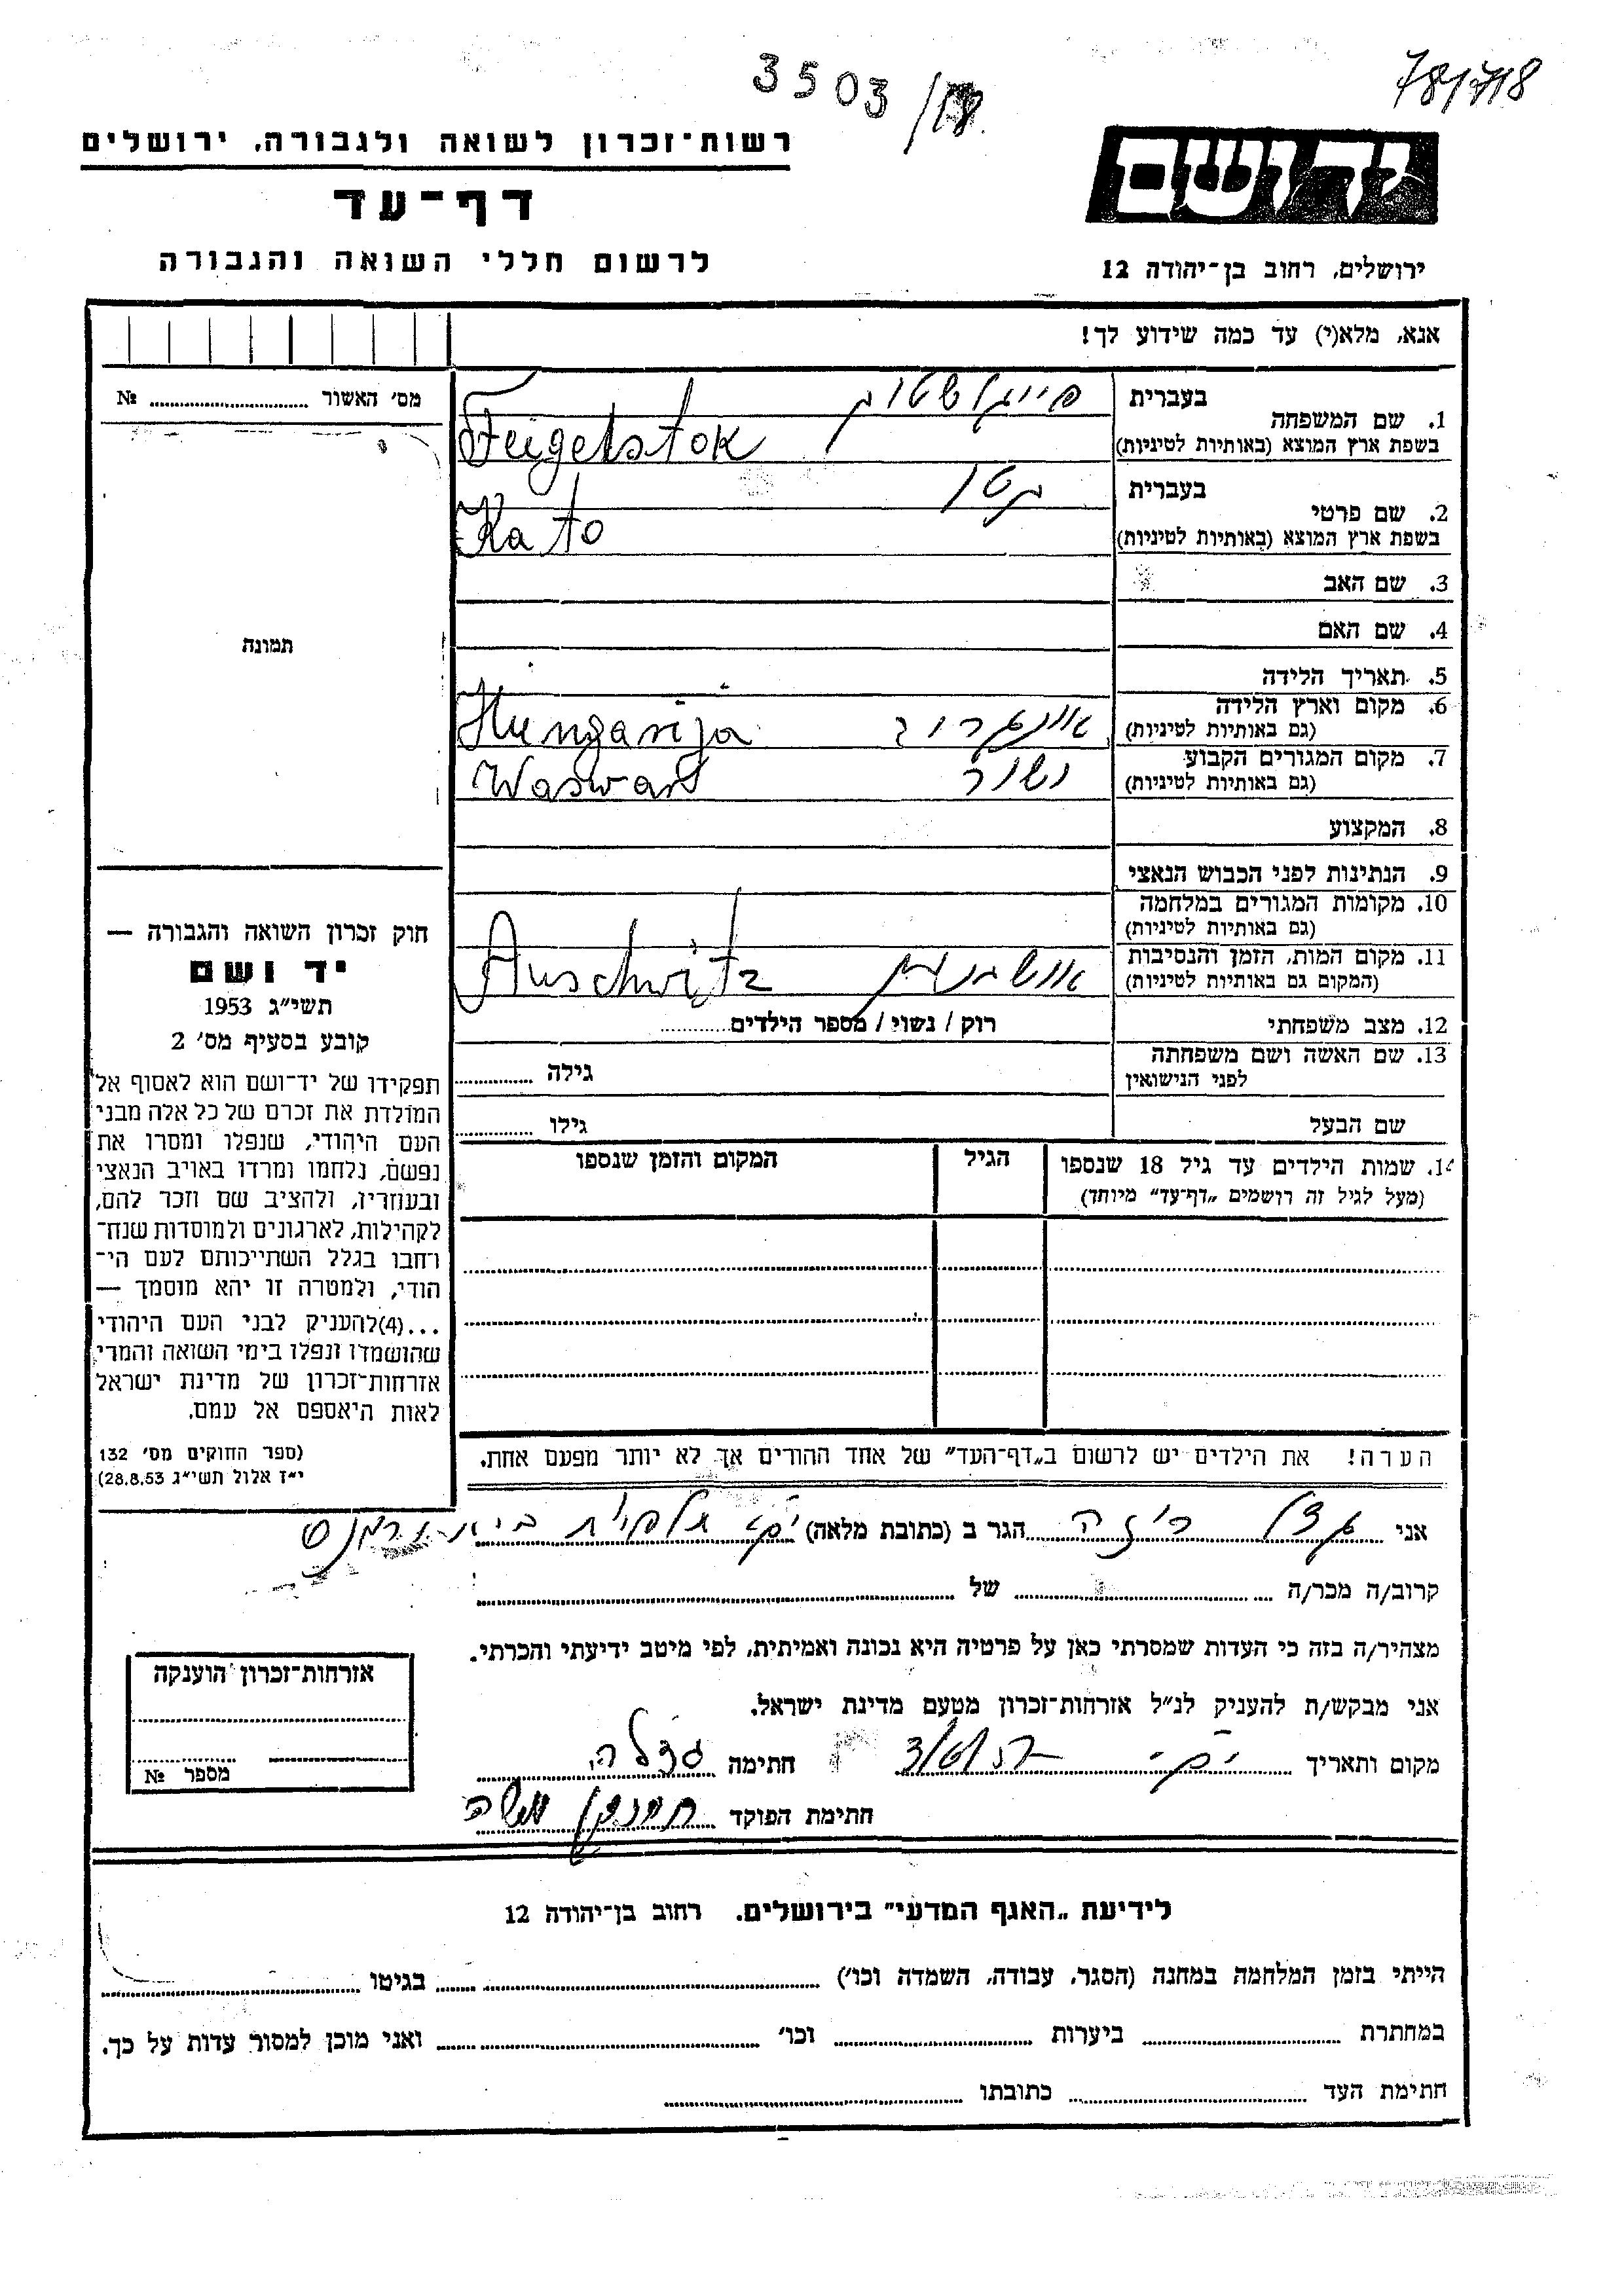 3503/17
781718
רשות־זכרון לשואה ולגבורה, ירושלים
דף־עד
לרשום חללי השואה והגבורה
יד ושם
ירושלים, רחוב בן־יהודה 12
אנא, מלא(י) עד כמה שידוע לך!
מס׳ האשור № 
תמונה
1. שם המשפחה
בעברית
פייגלשטוק
בשפת ארץ המוצא (באותיות לטיניות)
Feigelstok
2. שם פרטי
בעברית
קטו
בשפת ארץ המוצא (באותיות לטיניות)
Kato
3. שם האב
4. שם האם
5. תאריך הלידה
6. מקום וארץ הלידה
(גם באותיות לטיניות)
Hungarija
7. מקום המגורים הקבוע
(גם באותיות לטיניות)
8. המקצוע
9. הנתינות לפני הכבוש הנאצי
10. מקומות המגורים במלחמה
(גם באותיות לטיניות)
11. מקום המות, הזמן והנסיבות
(המקום גם באותיות לטיניות)
אושוויץ Auschwitz
12. מצב משפחתי
רוק / נשוי / מספר הילדים
13. שם האשה ושם משפחתה
לפני הנישואין
גילה
שם הבעל
גילו
14. שמות הילדים עד גיל 18 שנספו
(מעל לגיל זה רושמים „דף־עד״ מיוחד)
הגיל
המקום והזמן שנספו
חוק זכרון השואה והגבורה —
יד ושם
תשי״ג 1953
קובע בסעיף מס׳ 2
תפקידו של יד־ושם הוא לאסוף אל
המולדת את זכרם של כל אלה מבני
העם היהודי, שנפלו ומסרו את
נפשם, נלחמו ומרדו באויב הנאצי
ובעוזריו, ולהציב שם וזכר להם,
לקהילות, לארגונים ולמוסדות שנח־
רחבו בגלל השתייכותם לעם הי־
הודי, ולמטרה זו יהא מוסמך —
...(4)להעניק לבני העם היהודי
שהושמדו ונפלו בימי השואה והמרי
אזרחות־זכרון של מדינת ישראל
לאות היאספם אל עמם.
(ספר החוקים מס׳ 132
י״ז אלול תשי״ג 28.8.53)
הערה! את הילדים יש לרשום ב„דף־העד״ של אחד ההורים אך לא יותר מפעם אחת.
אני הגר ב (כתובת מלאה)
קרוב/ה מכר/ה של
מצהיר/ה בזה כי העדות שמסרתי כאן על פרטיה היא נכונה ואמיתית, לפי מיטב ידיעתי והכרתי.
אני מבקש/ת להעניק לנ״ל אזרחות־זכרון מטעם מדינת ישראל.
מקום ותאריך חתימה
חתימת הפוקד
אזרחות־זכרון הוענקה
מספר №
לידיעת „האגף המדעי״ בירושלים. רחוב בן־יהודה 12
הייתי בזמן המלחמה במחנה (הסגר, עבודה, השמדה וכו׳) בגיטו
במחתרת ביערות וכו׳ ואני מוכן למסור עדות על כך.
חתימת העד כתובתו